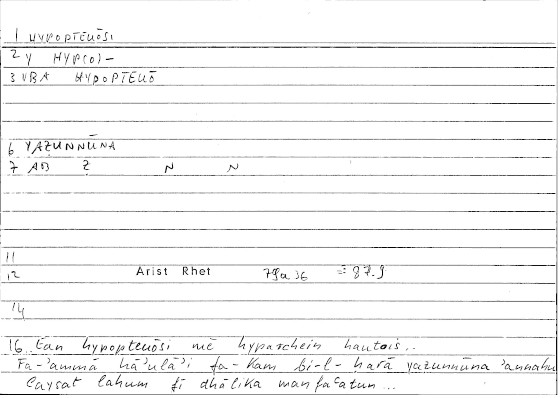 1 HYPOPTEUŌSI
2 Y HYP(O)-
3 VBA HYPOPTEUŌ
6 YAẒUNNŪNA
7 AB Ẓ N N
11
12 Arist Rhet 79a36 = 87.9
14
16 Ean hypopteuōsi mē hyparchein hautois..
Fa-'ammā hā'ulā'i fa-kam bi-l-ḥarā yaẓunnūna 'annahu
laysat lahum fī dhālika manfaʿatun...